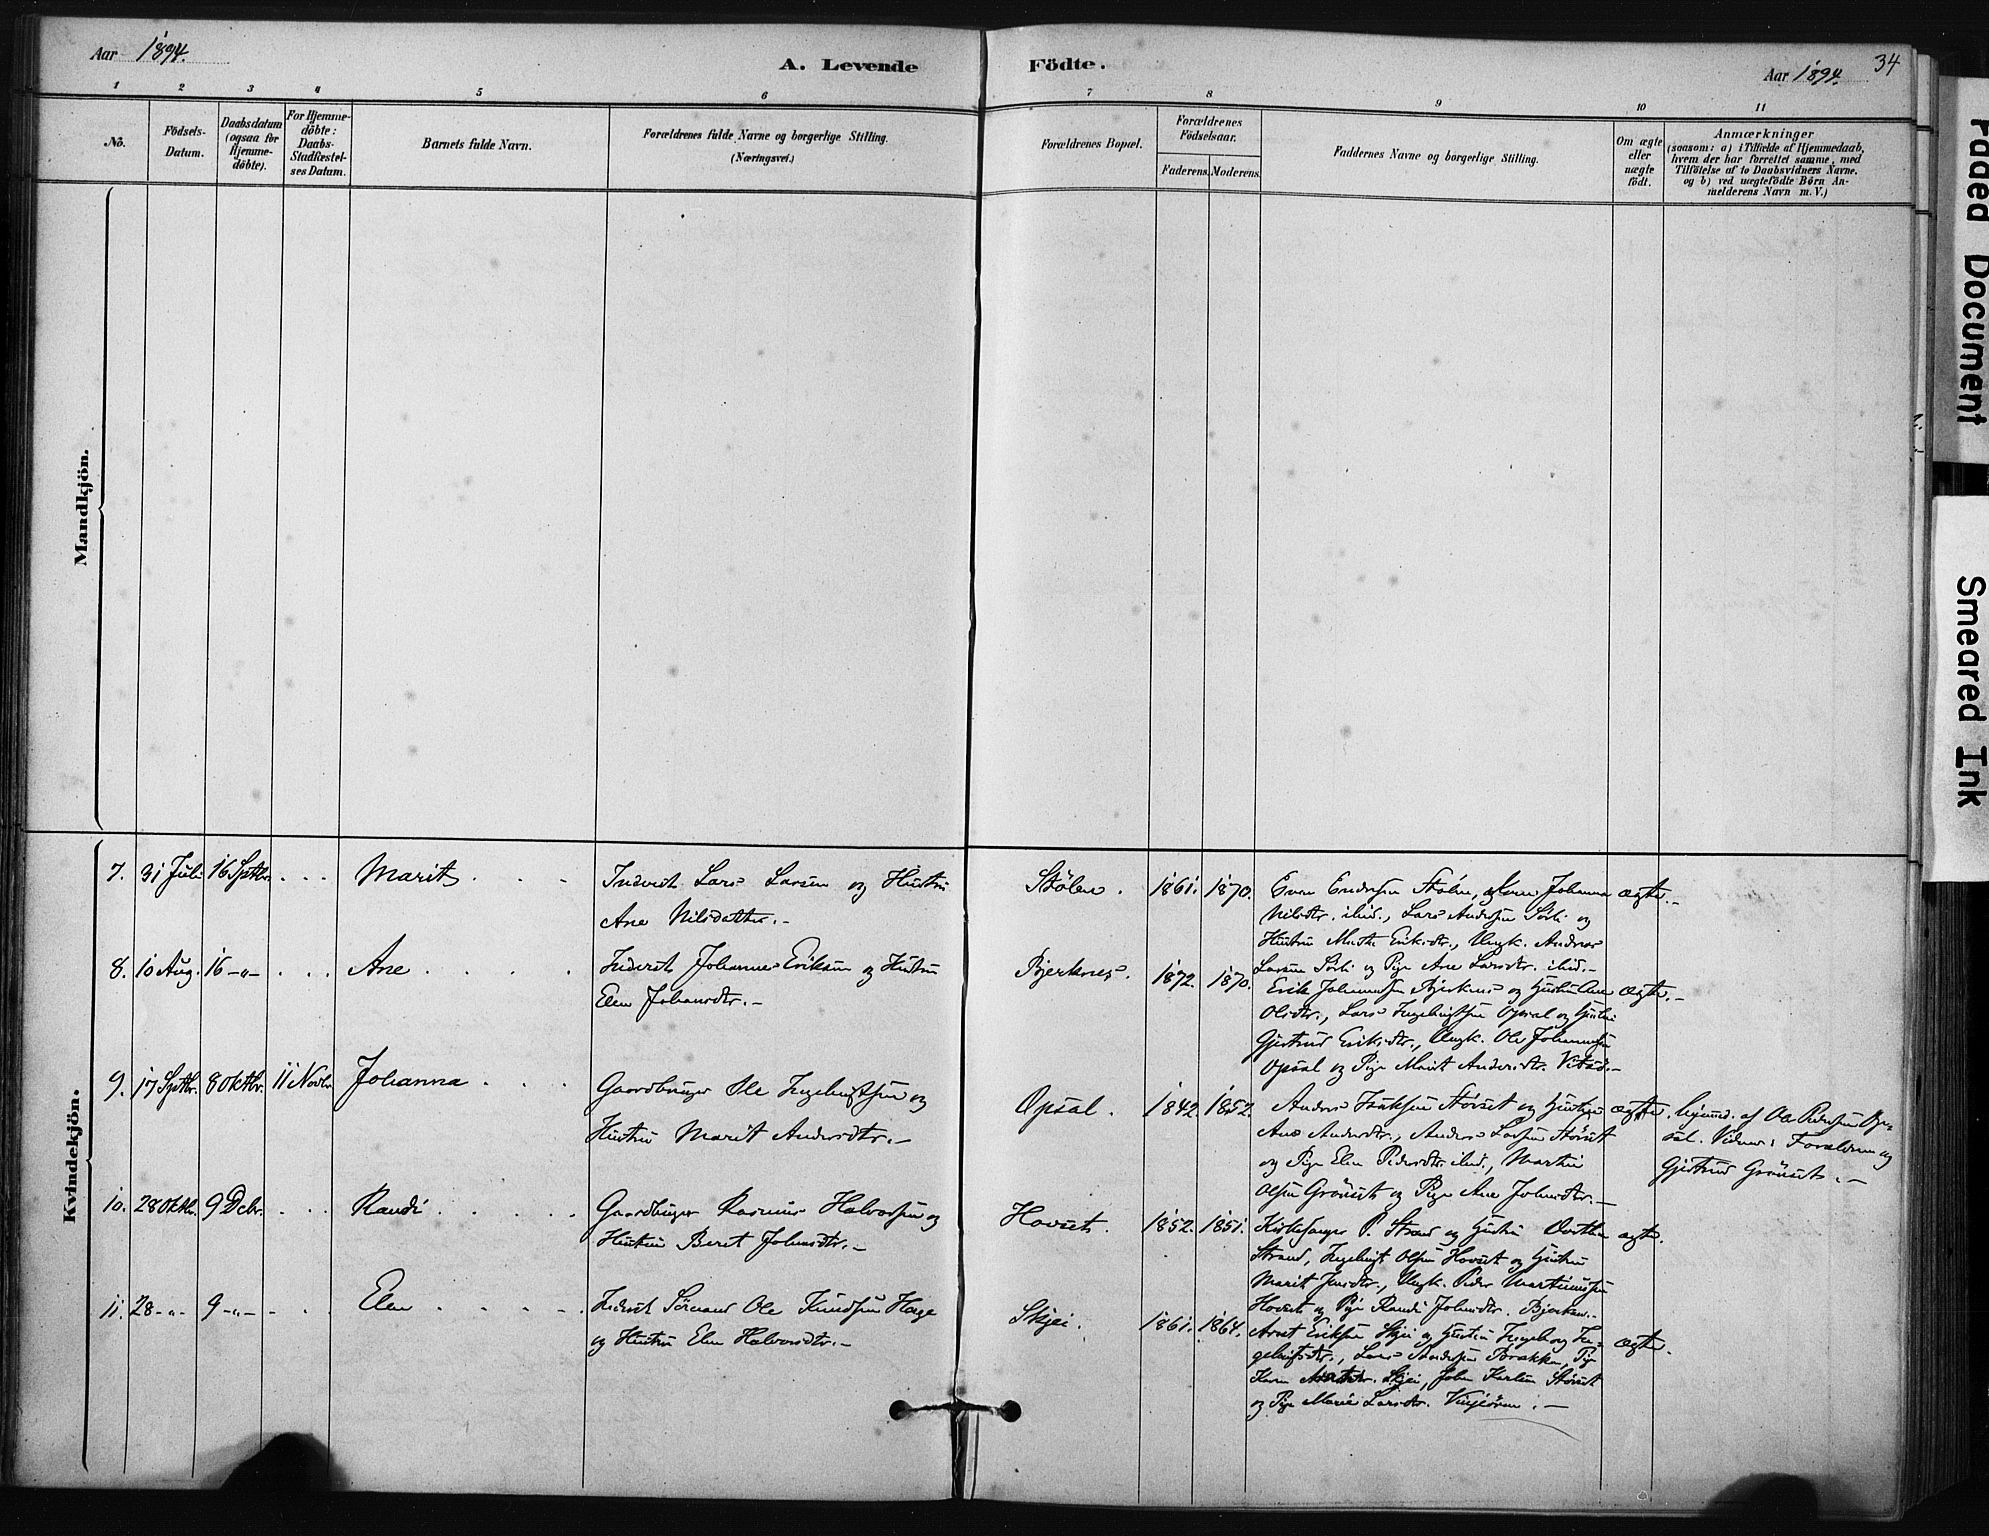 Aar 1894.
A. Levende
Födte.
Aar 1894.
34
1 2 3 4 5 6 7 8 9 10 11
No.
Födsels-
Datum.
Daabsdatum
(ogsaa for
Hjemme-
döbte).
For Hjemme-
döbte:
Daabs-
Stadfæstel-
ses Datum.
Barnets fulde Navn.
Forældrenes fulde Navne og borgerlige Stilling.
(Næringsvei.)
Forældrenes Bopæl.
Forældrenes
Födselsaar.
Faderens. Moderens.
Faddernes Navne og borgerlige Stilling.
Om ægte
eller
uægte
födt.
Anmærkninger
(saasom: a) i Tilfælde af Hjemmedaab,
hvem der har forrettet samme, med
Tilföielse af to Daabsvidners Navne.
og b) ved uægtefödte Börn An-
melderens Navn m. V.)
Mandkjön.
Kvindekjön.
7. 31 Juli 16 Septbr. . . . Marit . . .
Inderst Lars Larsen og Hustru
Ane Nilsdatter.-
Stölen. 1861. 1870.
Even Endresen Stölen, Johanna
Nilsdtr. ibid., Lars Andersen Sörli og
Hustru Marthe Eriksdtr., Ungk. Andreas
Larsen Sörli og Pige Ane Larsdtr. ibid.-
ægte.-
8. 10 Aug. 16 -„- . . . Ane . . . .
Inderst Johannes Eriksen og Hustru
Elen Johansdtr.-
Bjerknes. 1872. 1870.
Erik Johannessen Bjerknes og Hustru Ane
Olsdtr., Lars Ingebrigtsen Opsal og Hustru
Gjertrud Eriksdtr., Ungk. Ole Johannessen
Opsal og Pige Marit Andersdtr.
ægte.-
9. 17 Septbr. 8 Oktbr. 11 Novbr. Johanna . . .
Gaardbruger Ole Ingebrigtsen og
Hustru Marit Andersdtr.-
Opsal. 1842. 1852.
Anders Isaksen Störset og Hustru
Ane Andersdtr., Anders Larsen Störset
og Pige Elen Pedersdtr. ibid., Martin
Olsen Grönset og Pige Ane Johnsdtr.-
ægte.
af Ole Pedersen Op-
sal. Vidner: Forældrene og
Gjertrud Grönset.-
10. 28 Oktbr. 9 Decbr. . . . Randi . . . .
Gaardbruger Rasmus Halvorsen og
Hustru Beret Johnsdtr.-
Hovset. 1852. 1851.
Kirkesanger P. Strand og Hustru Dorthea
Strand, Ingebrigt Olsen Hovset og Hustru
Marit Jensdtr., Ungk. Peder Martinussen
Hovset og Pige Randi Johnsdtr. Bjerknes.
ægte.
11. 28 -„- 9 -„- . . . Elen . . . .
Inderst Ole Knudsen Hage
og Hustru Elen Halvorsdtr.-
Skjei. 1861. 1864.
Arnt Eriksen Skjei og Hustru Ingeborg In-
gebrigtsdtr., Lars Andersen Brækken, Pige
Karen Skjei, John Karlsen Störset
og Pige Marie Larsdtr. Vinjeören.-
ægte.
Faded Document
Smeared Ink